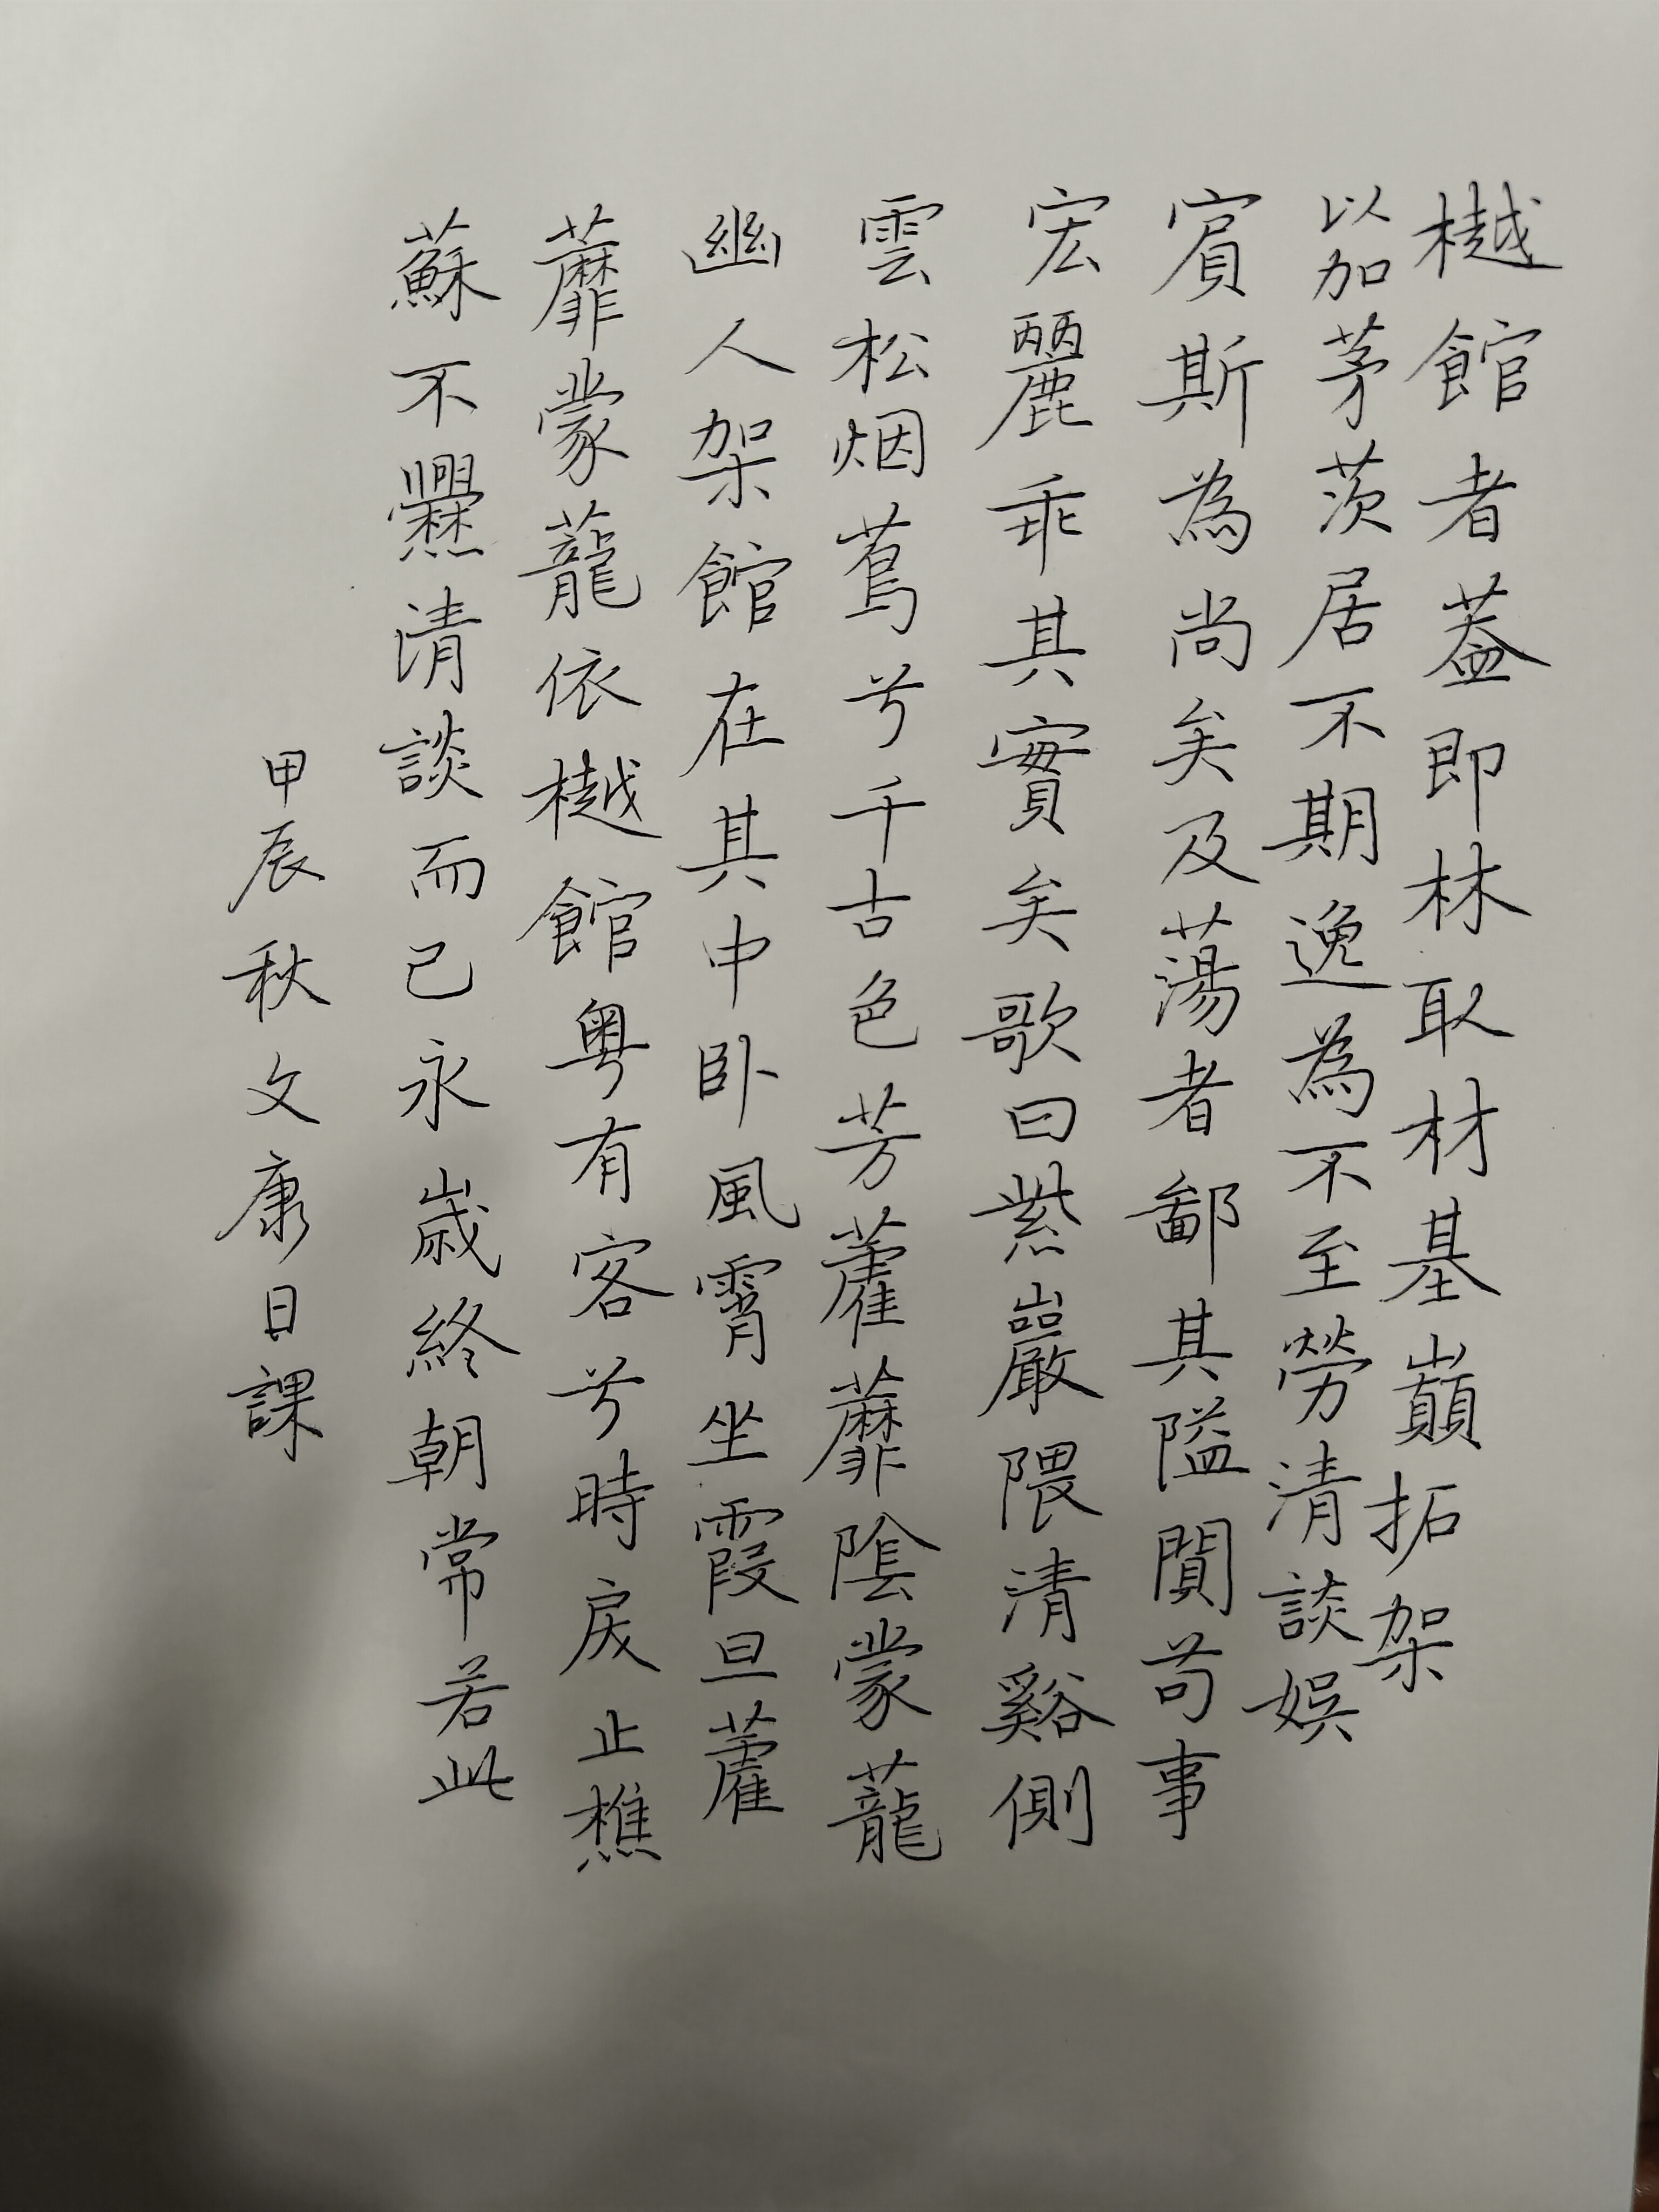 樾館者葢即林取材基巔拓架
以加茅茨居不期逸為不至勞清談娯
賓斯為尚矣及蕩者鄙其隘閴苟事
宏麗乖其實矣歌曰紫巖隈清谿側
雲松烟蔦兮千古色芳藿蘼陰蒙蘢
幽人架館在其中卧風霄坐霞旦藿
蘼蒙蘢依樾館粤有客兮時戾止樵
蘇不爨清談而已永歳終朝常若此
甲辰秋文康日課